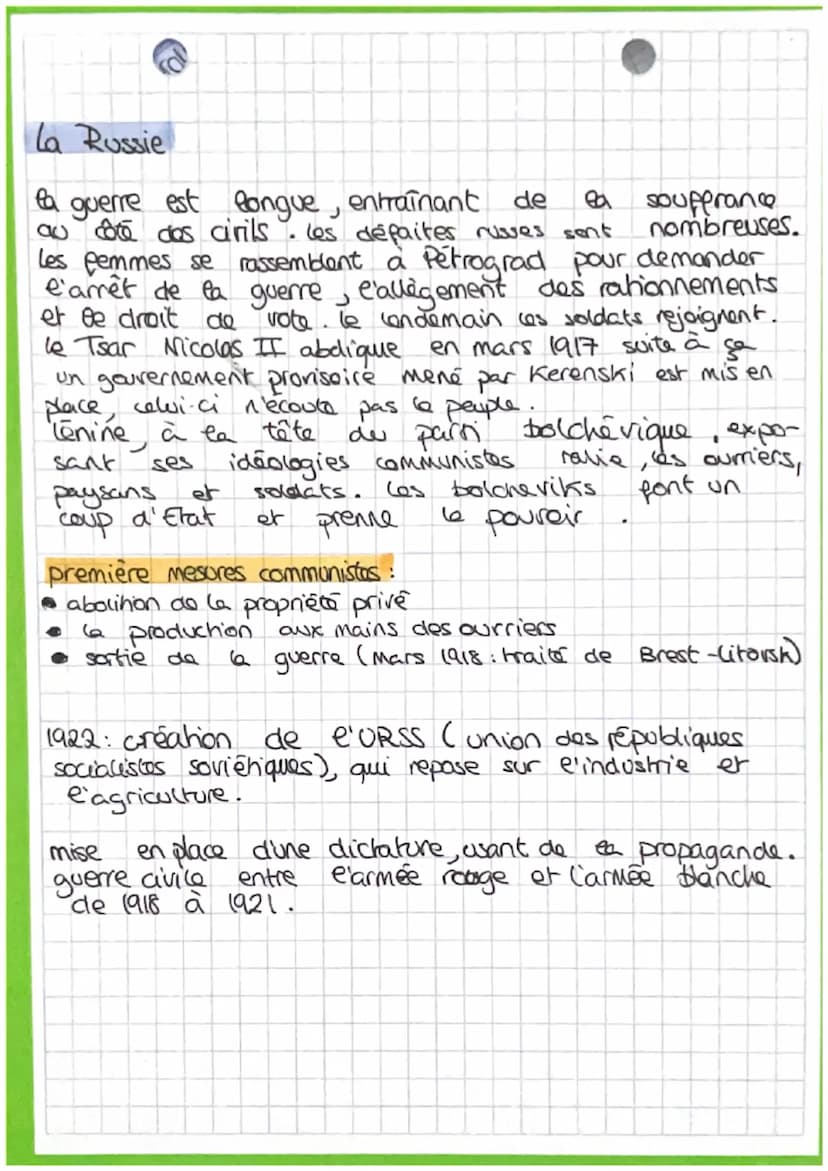 La Russie
la guerre est longue, entraînant de la souffrance
au côté des civils. les défaites russes sont nombreuses.
les femmes se rassemblent à Pétrograd pour demander
l'arrêt de la guerre, l'allègement des rationnements
et le droit de vote. le lendemain les soldats rejoignent.
le Tsar Nicolas II abdique en mars 1917 suite à ça
un gouvernement provisoire mené par Kerenski est mis en
place, celui-ci n'écoute pas le peuple.
Lénine, à la tête du parti bolchévique, expo-
sant ses idéologies communistes ralie, les ouvriers,
paysans et soldats. les bolcheviks font un
coup d'Etat et prenne le pouvoir.
première mesures communistes :
• abolition de la propriété privé
• la production aux mains des ouvriers
• sortie de la guerre (Mars 1918 : traité de Brest-Litovsk)
1922: création de l'URSS (union des républiques
socialistes soviétiques), qui repose sur l'industrie et
l'agriculture.
mise en place d'une dictature, usant de la propagande.
guerre civile entre l'armée rouge et l'armée blanche
de 1918 à 1921.